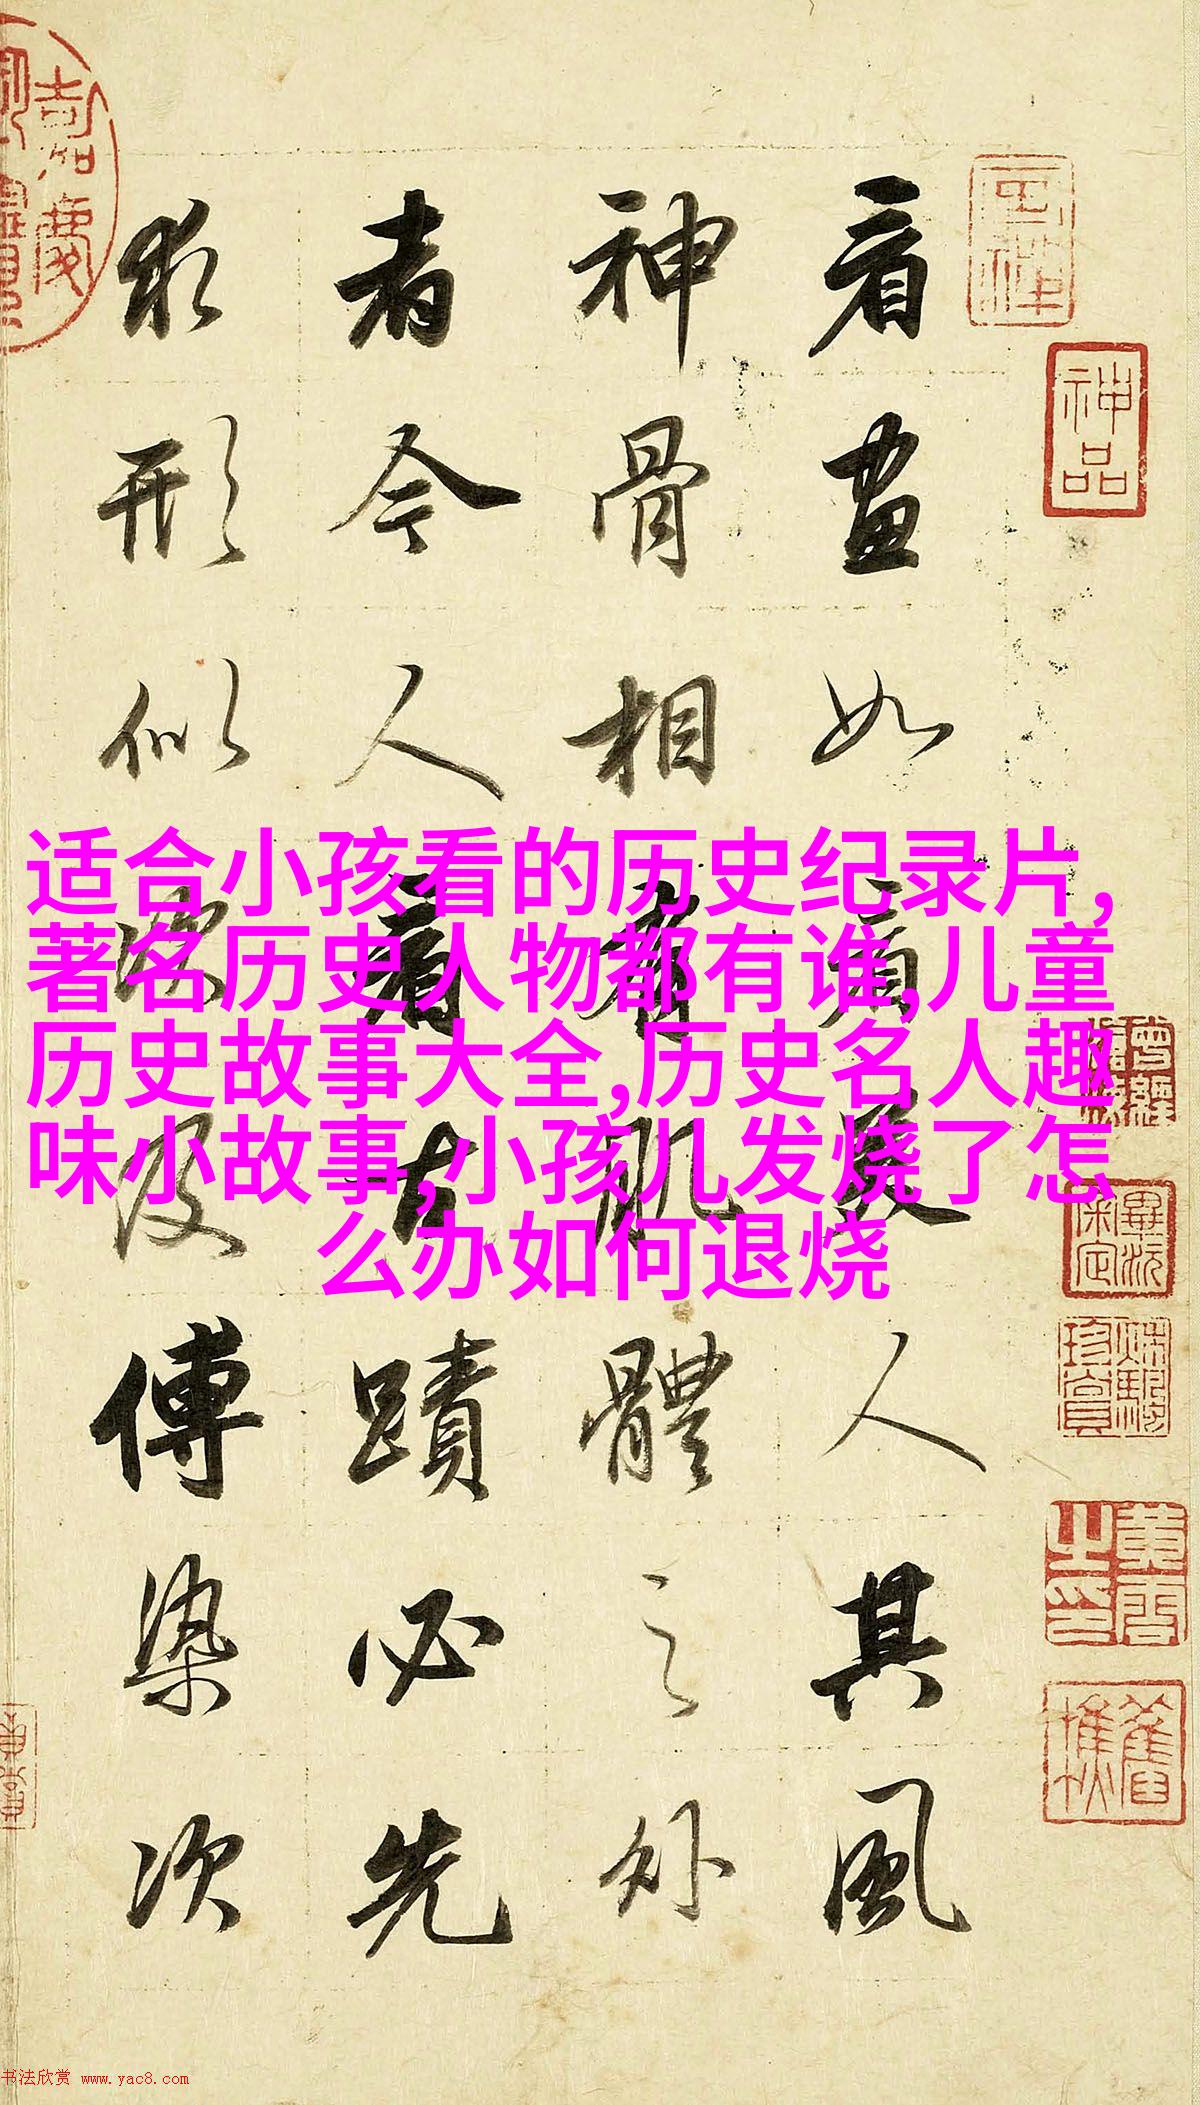 看畫如看美人其風
神骨相有肌體之外
者今人看古蹟必先
求形似次及傅染次
神品
嘉慶
适合小孩看的历史纪录片,
著名历史人物都有谁,儿童
历史故事大全,历史名人趣
味小故事,小孩儿发烧了怎
么办如何退烧
书法欣赏 www.yac8.com